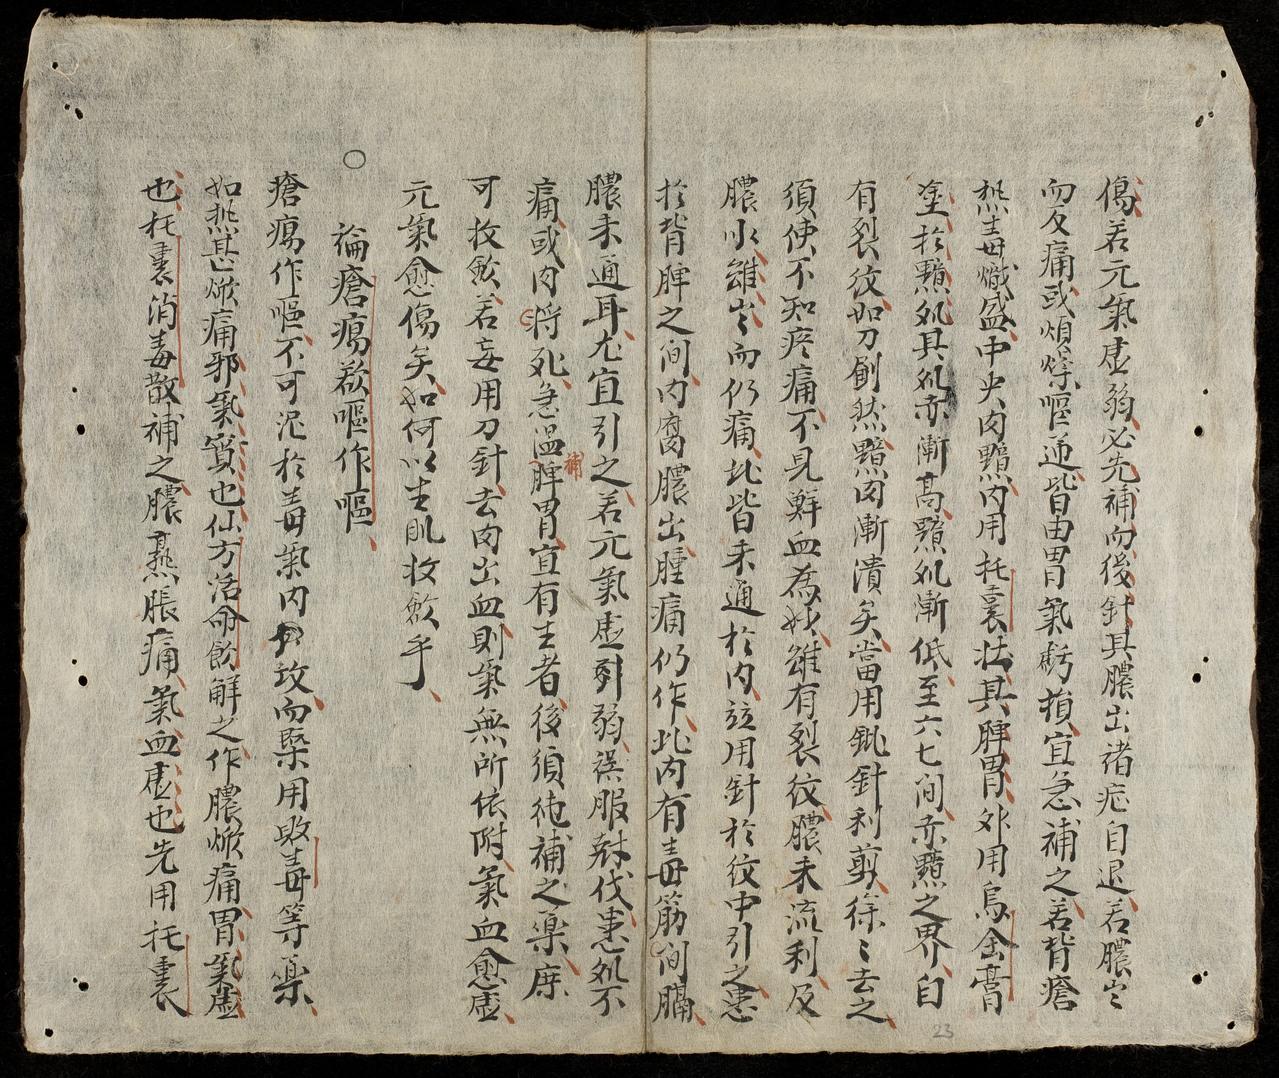 傷若元氣虛弱必先補而後針其膿出諸症自退若膿出
而反痛或煩燥嘔逆皆由胃氣虧損宜急補之若背瘡
熱毒熾盛中央肉黯內用托裏壯其脾胃外用烏金膏
塗於黯処其処亦漸高黯処漸低至六七間亦黯之界自
有裂紋如刀劃然黯肉漸潰矣當用鈚針利剪徐〻去之
須使不知疼痛不見鮮血為妙雖有裂紋膿未流利及
膿水雖出而仍痛此皆未通於內並用針於紋中引之患
於背脾之間內腐膿出腫痛仍作此內有毒筋間膈
膿未通耳尤宜引之若元氣虛弱誤服尅伐患処不
痛或內將死急溫補脾胃宜有生者後須純補之藥庶
可收斂若妄用刀針去肉出血則氣無所依附氣血愈虛
元氣愈傷矣如何以生肌收斂乎
○
論瘡瘍欲嘔作嘔
瘡瘍作嘔不可泥於毒氣內攻而槩用敗毒等藥
如熱甚焮痛邪氣實也仙方活命飲解之作膿焮痛胃氣虛
也托裏消毒散補之膿熟脹痛氣血虛也先用托裏
補
23